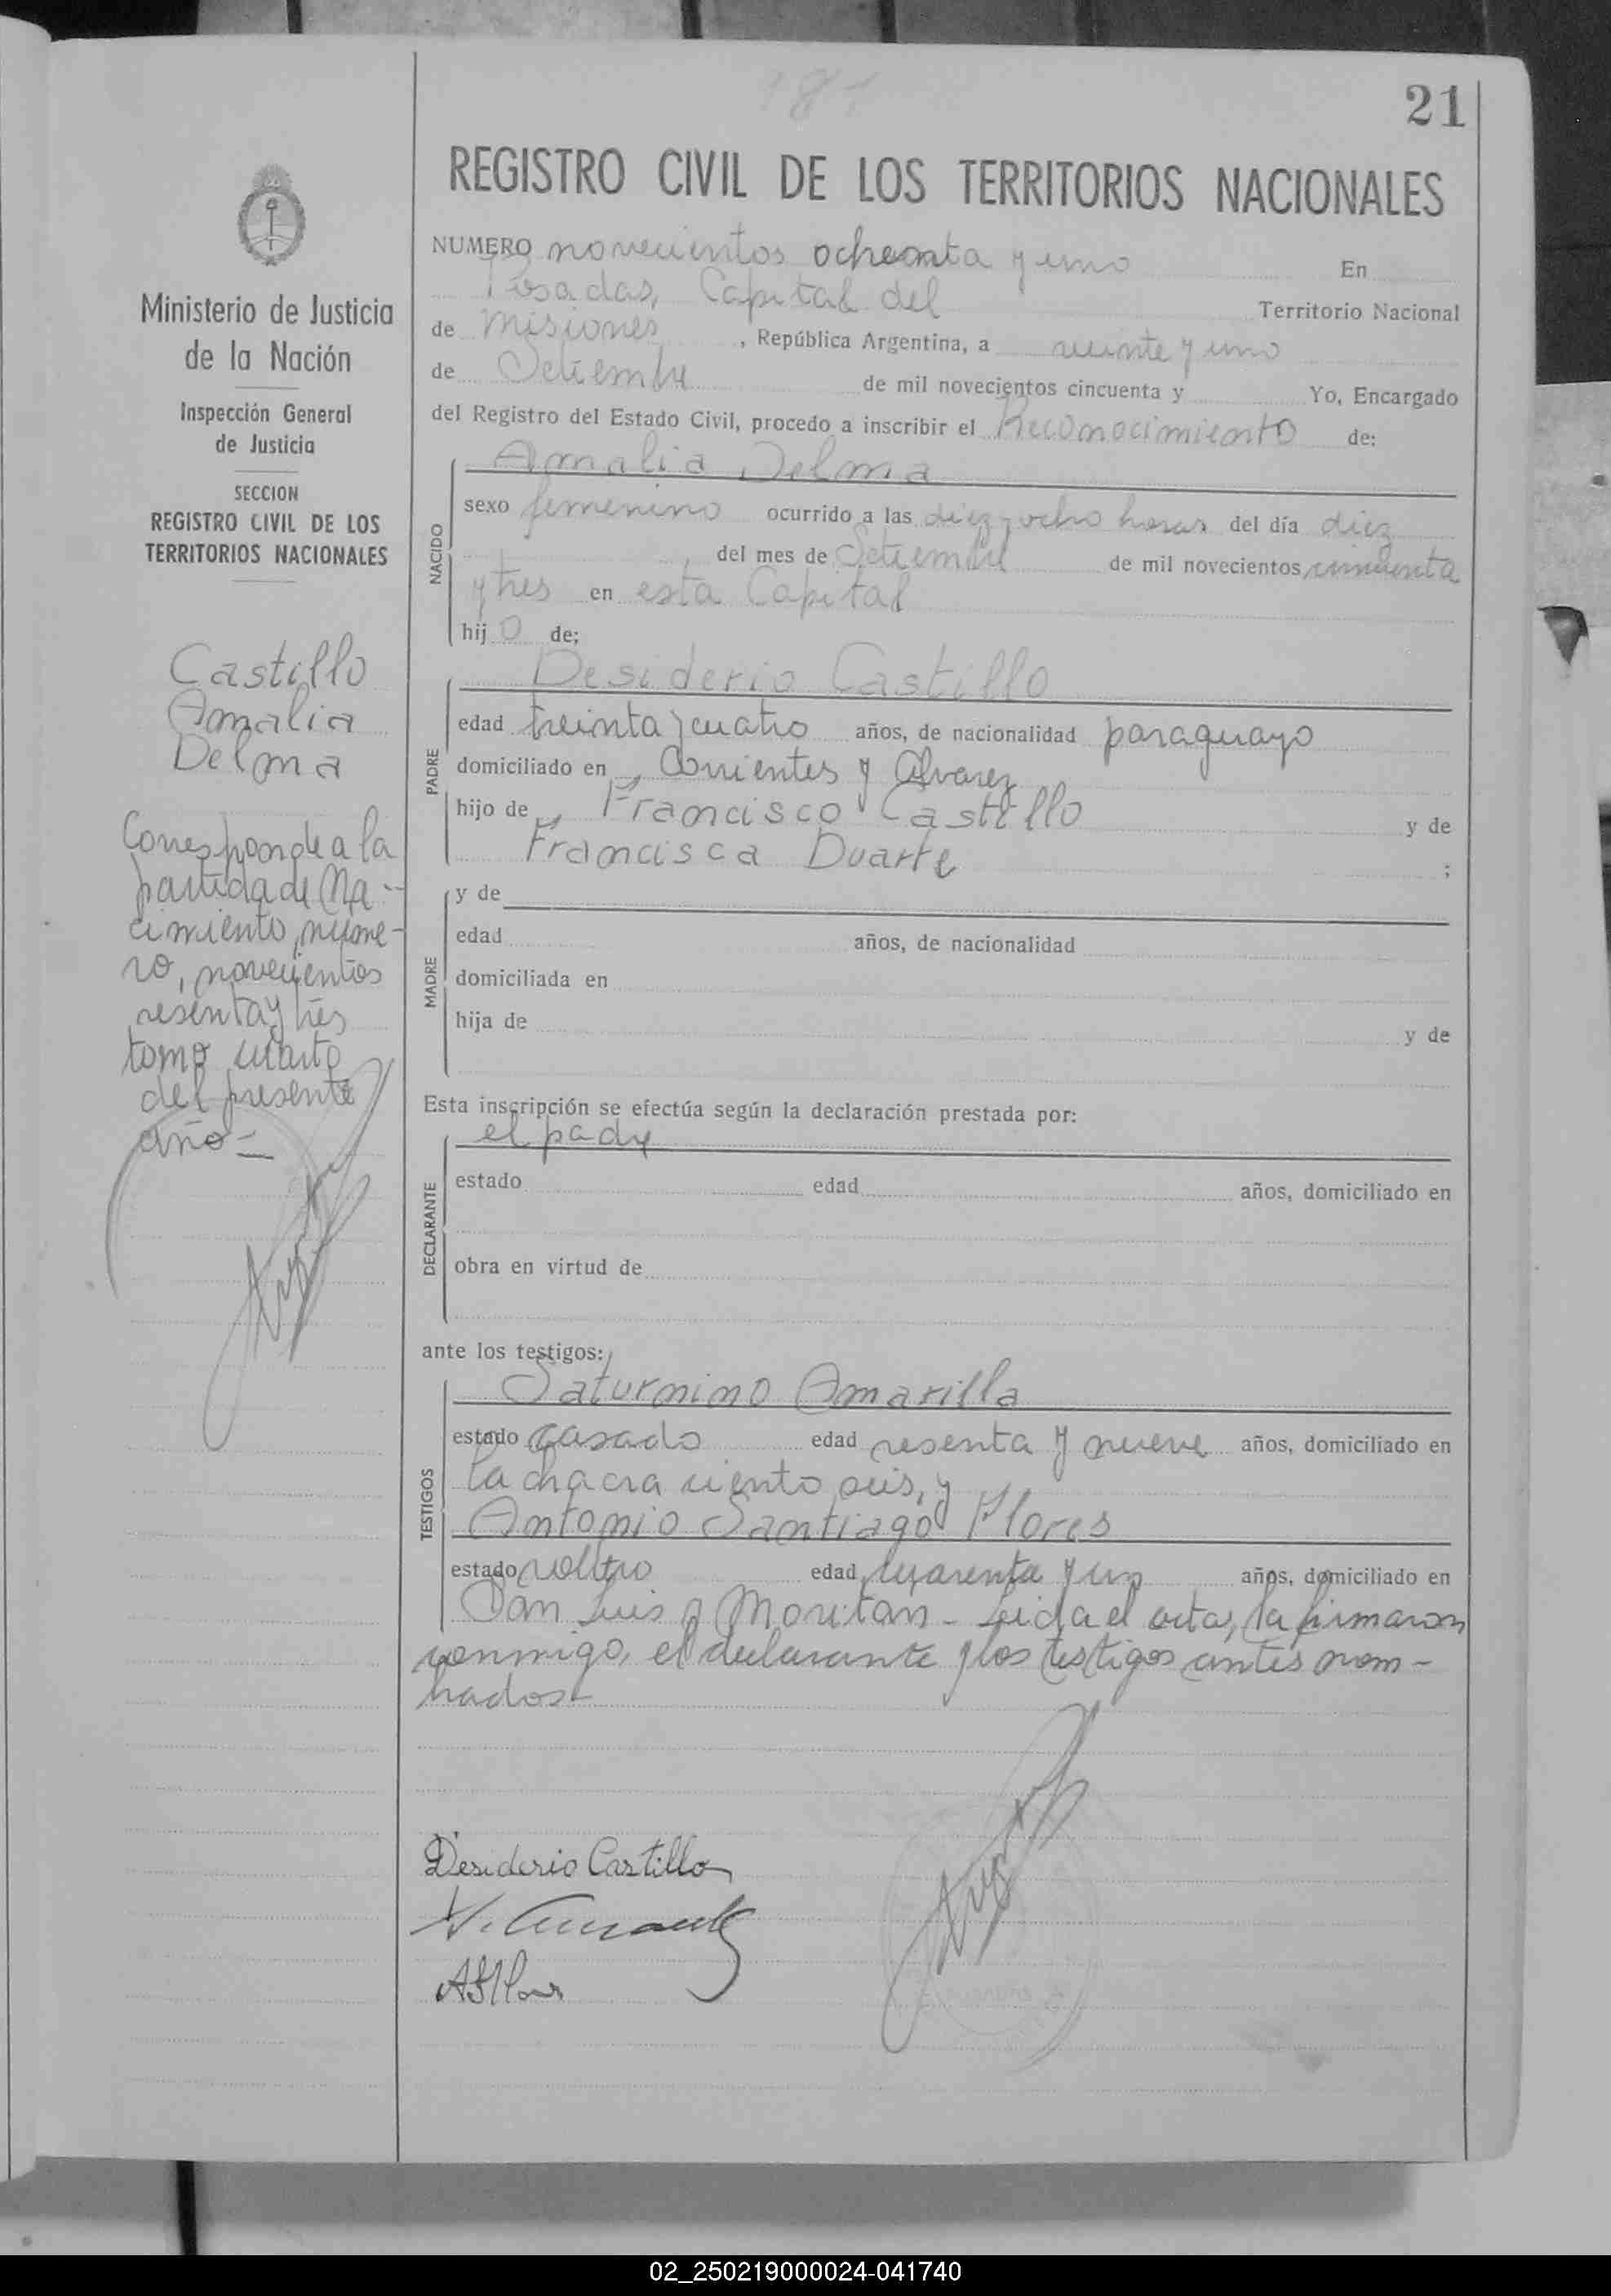 21
REGISTRO CIVIL DE LOS TERRITORIOS NACIONALES
Ministerio de Justicia
de la Nación
Inspección General
de Justicia
SECCION
REGISTRO CIVIL DE LOS
TERRITORIOS NACIONALES
Castillo
Amalia
Delma
Corresponde a la
partida de Na-
cimiento, núme-
ro, novecientos
sesenta y tres
tomo cuarto
del presente
año -
NUMERO novecientos ochenta y uno En
Posadas, Capital del Territorio Nacional
de Misiones, República Argentina, a veinte y uno
de Setiembre de mil novecientos cincuenta y Yo, Encargado
del Registro del Estado Civil, procedo a inscribir el Reconocimiento de:
NACIDO
Amalia Delma
sexo femenino ocurrido a las diez y ocho horas del día diez
del mes de Setiembre de mil novecientos cincuenta
y tres en esta Capital
hijo de:
PADRE
Desiderio Castillo
edad treinta y cuatro años, de nacionalidad paraguayo
domiciliado en Corrientes y Alvarez
hijo de Francisco Castillo y de
Francisca Duarte ;
MADRE
y de
edad años, de nacionalidad
domiciliada en
hija de y de
Esta inscripción se efectúa según la declaración prestada por:
DECLARANTE
el padre
estado edad años, domiciliado en
obra en virtud de
ante los testigos:
TESTIGOS
Saturnino Amarilla
estado casado edad sesenta y nueve años, domiciliado en
la chacra ciento seis, y
Antonio Santiago Flores
estado soltero edad cuarenta y un años, domiciliado en
San Luis y Moritan - Leida el acta, la firmaron
conmigo, el declarante y los testigos antes nom-
brados -
Desiderio Castillo
02_250219000024-041740